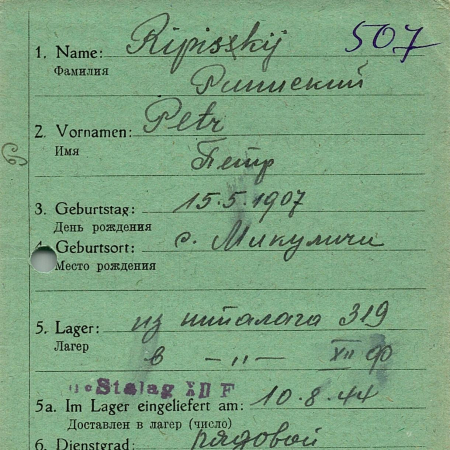 507
1. Name: Ripiszkij
Фамилия Рипиский
2. Vornamen: Petr
Имя Петр
3. Geburtstag: 15.5.1907
День рождения
4. Geburtsort: с. Микуличи
Место рождения
5. Lager: из шталага 319
Лагер в -„- XII Ф
Stalag XII F
5a. Im Lager eingeliefert am: 10.8.44
Доставлен в лагер (число)
6. Dienstgrad: рядовой